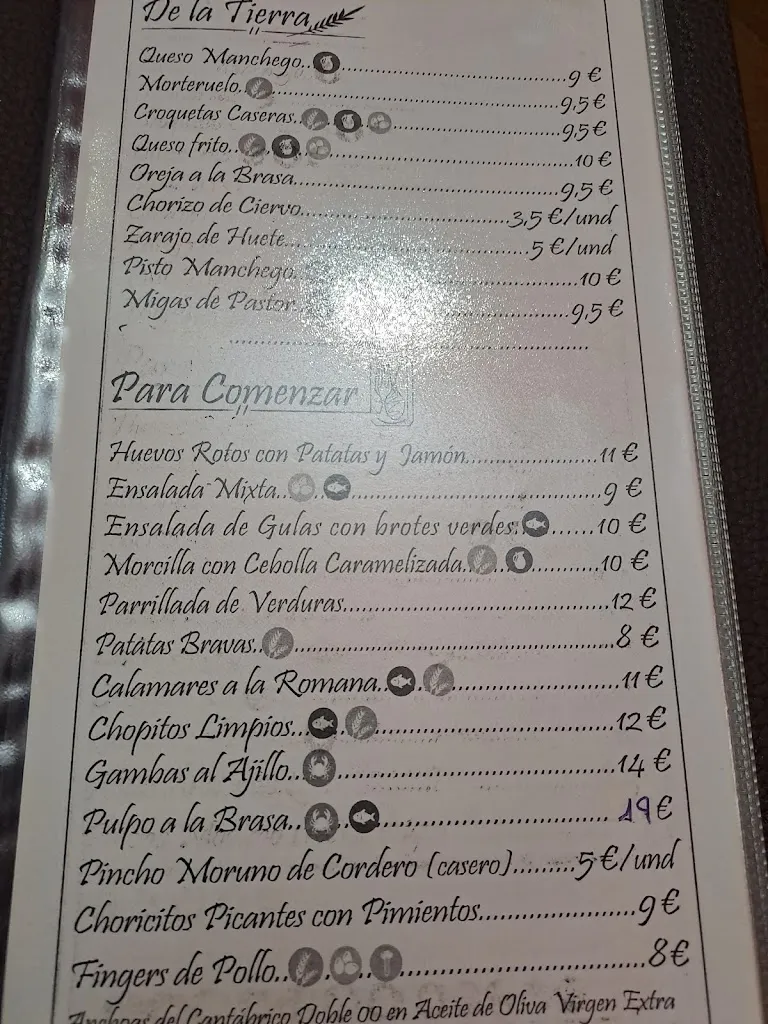 De la Tierra
Queso Manchego..................9 €
Morteruelo..................9,5 €
Croquetas Caseras..................9,5 €
Queso frito..................10 €
Oreja a la Brasa..................9,5 €
Chorizo de Ciervo..................3,5 €/und
Zarajo de Huete..................5 €/und
Pisto Manchego..................10 €
Migas de Pastor..................9,5 €
Para Comenzar
Huevos Rotos con Patatas y Jamón..................11 €
Ensalada Mixta..................9 €
Ensalada de Gulas con brotes verdes.......10 €
Morcilla con Cebolla Caramelizada............10 €
Parrillada de Verduras..................12 €
Patatas Bravas..................8 €
Calamares a la Romana..................11 €
Chopitos Limpios..................12 €
Gambas al Ajillo..................14 €
Pulpo a la Brasa..................19 €
Pincho Moruno de Cordero (casero).........5 €/und
Choricitos Picantes con Pimientos..................9 €
Fingers de Pollo..................8 €
Anchoas del Cantábrico Doble 00 en Aceite de Oliva Virgen Extra